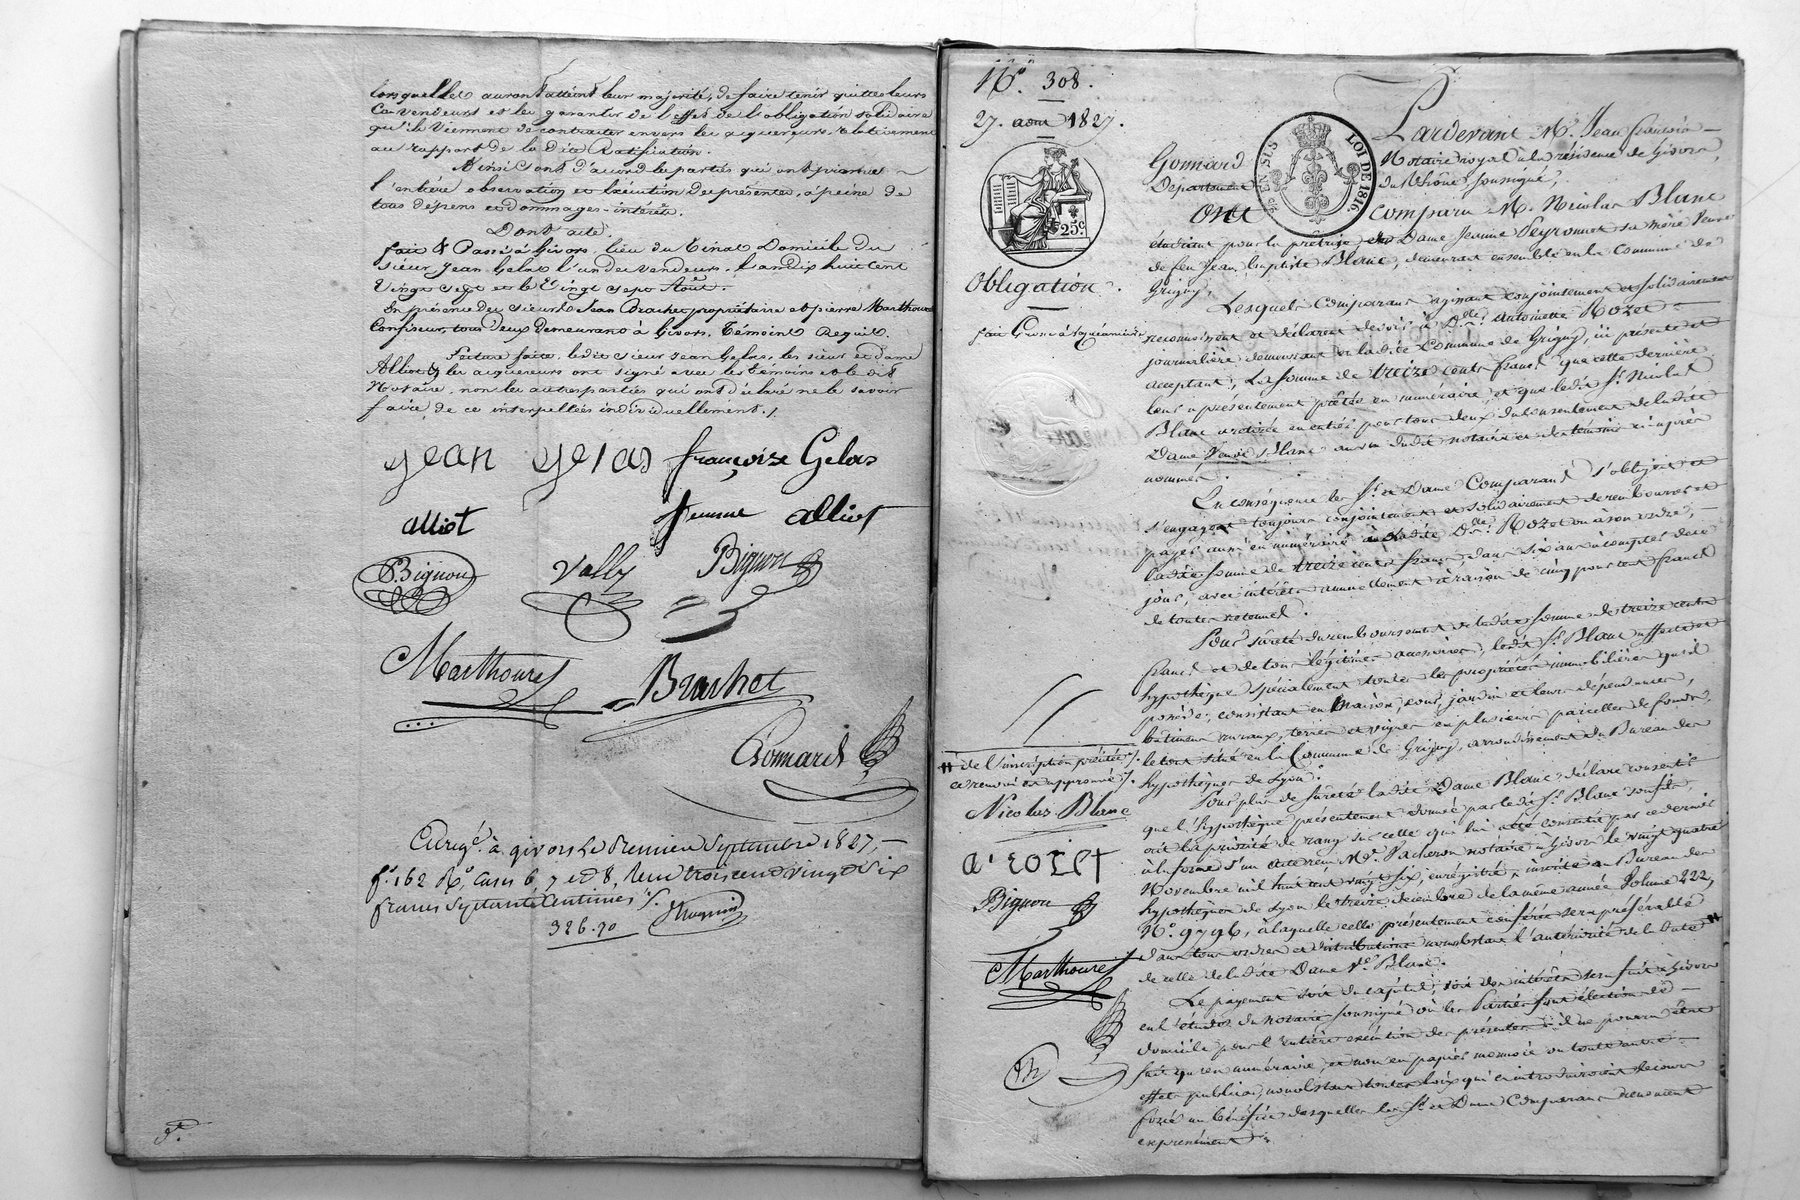 lorsquelles auront atteint leur majorité, de faire tenir quittes leurs
Co-vendeurs et les garantir de l'effet de l'obligation solidaire
qu'ils viennent de contracter envers les acquéreurs relativement
au rapport de la dite Ratification.
Ainsi sont d'accord les parties qui ont promis
l'entière observation et exécution des présentes, à peine de
tous dépens et dommages-intérêts.
Dont acte.
fait & Passé à Givors, lieu du Domicile du
sieur Jean Gelas l'un des vendeurs. L'an dix huit cent
Vingt sept et le Vingt sept Août.
En présence des sieurs Jean Brachet propriétaire et pierre Marthoure
Confiseur, tous deux demeurant à Givors, Témoins Requis.
Lecture faite, ledit sieur Jean Gelas, les sieur et dame
Alliot & les acquereurs ont signé avec les témoins et le dit
Notaire, non les autres parties qui ont déclaré ne le savoir
faire, de ce interpellées individuellement ./.
jean gelas françoise Gelas
alliot femme alliot
P. Bignon Vally Bignon
Marthoure Brachet
Gonnard
Enregé. à givors Le Premier Septembre 1827,
fo. 162 Ro. Cases 6 7 et 8, Reçu trois cent vingt Six
francs Septante Centimes
326.70
No. 308.
27. aout 1827.
25c
LOI DE 1816.
Obligation.
fait Grosse à la créancière
Pardevant Me. Jean François
Gonnard Notaire royal à la résidence de Givors,
Département du Rhône, soussigné,
ONT Comparu M. Nicolas Blanc
étudiant pour la prêtrise, et Dame Jeanne Peyronnet sa mère veuve
de feu Jean Baptiste Blanc, demeurant ensemble en la Commune de
Grigny,
Lesquels Comparans agissant conjointement et solidairement
reconnaissent et déclarent devoir à Dlle. Antoinette Rozet
journalière demeurant en ladite Commune de Grigny, ici présente et
acceptant, La somme de treize cents francs que cette dernière
leur a présentement prêtée en numéraire, et que ledit Sr. Nicolas
Blanc a retirée en entier pour tous deux du consentement de ladite
Dame Veuve Blanc au vu dudit notaire et des témoins ci-après
nommés.
En conséquence les Sr. et Dame Comparans s'obligent et
s'engagent toujours conjointement et solidairement de rembourser et
payer aussi en numéraire à ladite Dlle. Rozet ou à son ordre,
ladite somme de treize cents francs, dans six ans à compter de ce
jour, avec intérêts annuellement à raison de cinq pour cent francs
de toute retenue.
Pour sûreté du remboursement de ladite somme de treize cents
francs et de tous légitimes accessoires, ledit Sr. Blanc affecte et
hypothèque spécialement toutes les propriétés immobilières qu'il
possède, consistant en Maison, cour, jardin et leurs dépendances,
bâtimens ruraux, terres et vignes en plusieurs parcelles de fonds,
le tout situé en la Commune de Grigny, arrondissement du Bureau des
hypothèques de Lyon.
Pour plus de sûreté ladite Dame Blanc, déclare consentir
que l'hypothèque présentement donnée par ledit Sr. Blanc son fils,
ait la priorité de rang sur celle qui lui a été consentie par ce dernier
à la forme d'un acte reçu Me. Pacheron notaire à Givors le vingt quatre
Novembre mil huit cent vingt six, enregistré, inscrite au Bureau des
hypothèques de Lyon le treize décembre de la même année Volume 222,
No. 9796, à laquelle celle présentement conférée sera préférable
dans tous ordres et distributions nonobstant l'antériorité de la date
de celle de ladite Dame Ve. Blanc.
Le payement soit du capital, soit des intérêts sera fait à Givors
en l'étude du notaire soussigné où les Parties font élection de
domicile pour l'entière exécution des présentes; il ne pourra être
fait qu'en numéraire, et non en papier monnoie ou tout autre
effets publics, nonobstant toutes loix qui en introduiroient le cours
forcé au bénéfice desquelles les Sr. et Dame Comparans renoncent
expressément.
de l'inscription précitée ./.
ce renvoi est approuvé ./.
Nicolas Blanc
a. rozet
Bignon
Marthoure